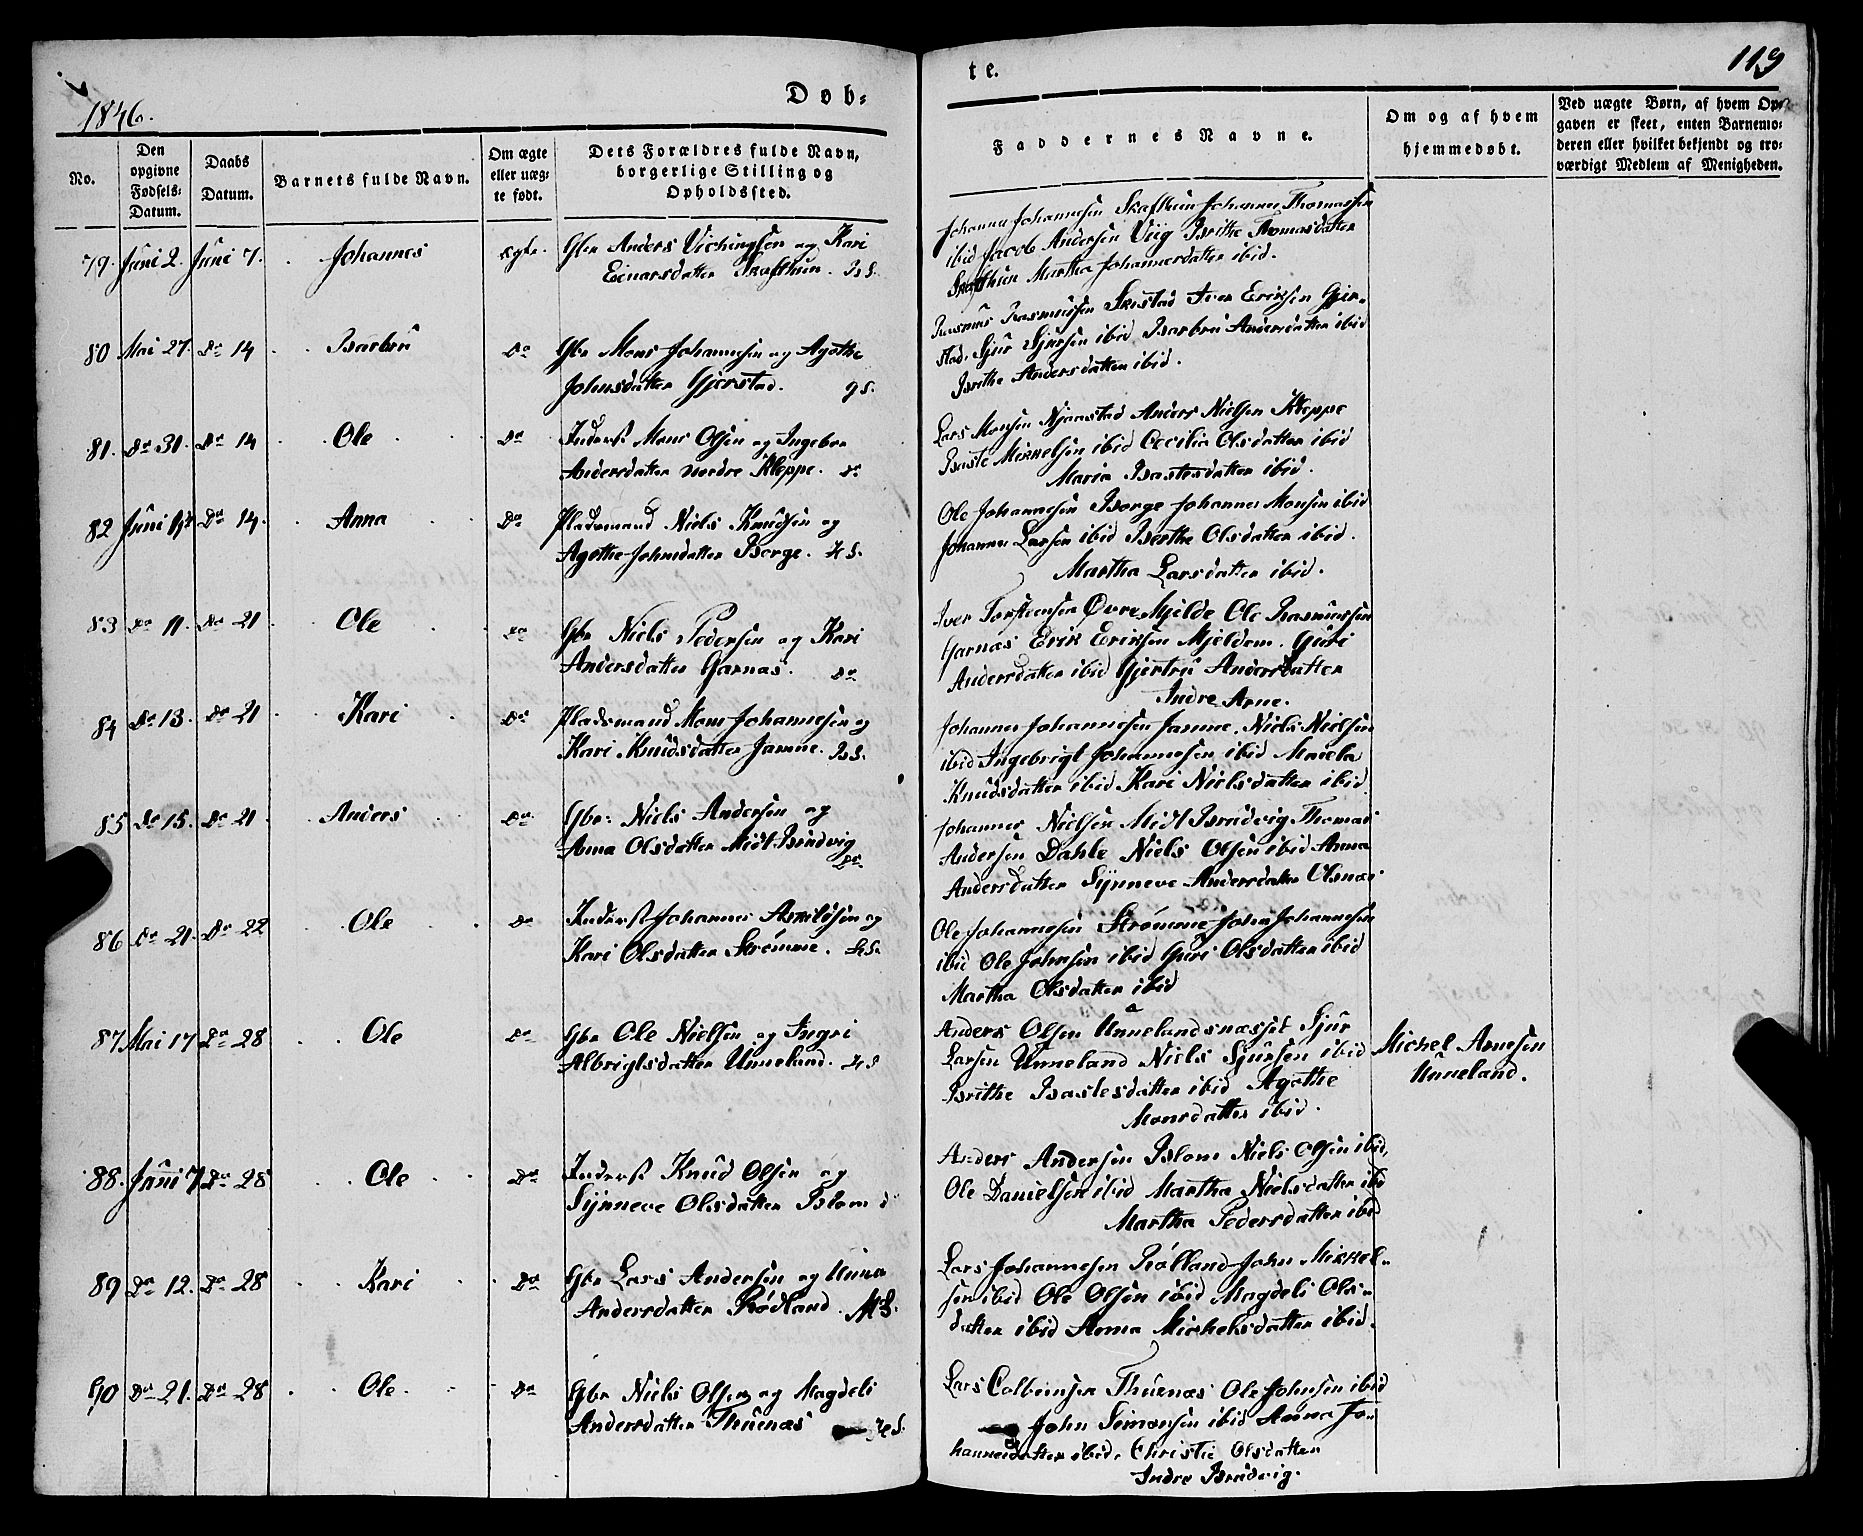 1846.
Døb-
te.
119
No.
Den opgivne Fødsels-Datum.
Daabs Datum.
Barnets fulde Navn.
Om ægte eller uæg-te født.
Dets Forældres fulde Navn, borgerlige Stilling og Opholdssted.
Faddernes Navne.
Om og af hvem hjemmedøbt.
Ved uægte Børn, af hvem Op-gaven er skeet, enten Barnemo-deren eller hvilket bekjendt og tro-værdigt Medlem af Menigheden.
79. Juni 2. Juni 7. Johannes ægte. Gbr Anders Vichingsen og Kari
Einarsdatter Skafthun.
Johannes Johannesen Skafthun Johannes Thomassen
ibid Jacob Andersen Viig Brithe Thomasdatter
Skafthun Martha Johannesdatter ibid.
80 Mai 27. Do 14 Barbru Do Gbr Mons Johannesen og Agathe
Johnsdatter Gjerstad. gS.
Rasmus Rasmussen Skistad Iver Eriksen Gjer-
stad, Sjur Sjursen ibid Barbru Andersdatter ibid
Brithe Andersdatter ibid.
81. Do 31. Do 14 Ole Do Inderst Mons Olsen og Ingebor
Andersdatter nordre Kleppe. Do
Lars Monsen Njaastad Anders Nielsen Kleppe
Baste Mikkelsen ibid Cecilia Olsdatter ibid
Maria Bastesdatter ibid.
82 Juni Do 14. Anna Do Pladsmand Niels Knudsen og
Agathe Johnsdatter Borge. HS.
Ole Johannesen Borge Johannes Monsen ibid
Johannes Larsen ibid Berthe Olsdatter ibid.
Martha Larsdatter ibid.
83 Do 11. Do 21 Ole Do Gbr Niels Pedersen og Kari
Andersdatter Garnas. Do
Iver Torsteensen Øvre Mjelde Ole Rasmussen
Garnæs Erik Eriksen Mjeldem. Guri
Andersdatter ibid Gjertru Andersdatter
Indre Arne.
84 Do 13. Do 21 Kari Do Pladsmand Mons Johannesen og
Kari Knudsdatter Jamne.
Johannes Johannesen Jamne. Niels Nielsen
ibid Ingebrigt Johannesen ibid
Knudsdatter ibid Kari Nielsdatter ibid
85 Do 15. Do 21. Anders Do Gbr: Niels Andersen og
Anna Olsdatter Midt Brudvig
Do
Johannes Nielsen Midt Brudvig Thomas
Andersen Dahle Niels Olsen ibid Anna
Andersdatter Synneve Andersdatter Olsnæs
86 Do 21. Do 22 Ole Do Inderst Johannes Askildsen og
Kari Olsdatter Strømme. HS.
Ole Johannesen Strømme John Johannesen
ibid Ole Johnsen ibid Guri Olsdatter ibid
Martha Olsdatter ibid
87 Mai 17 Do 28 Ole Do Gbr Ole Nielsen og Ingri
Albrigtsdatter Unneland. HS
Anders Olsen Unnelandsnæsset Sjur
Larsen Unneland Niels Sjursen ibid
Brithe Bastesdatter ibid Agathe
Monsdatter ibid.
Michel Arnesen
Unneland.
88. Juni 7. Do 28 Ole Do Inderst Knud Olsen og
Synneve Olsdatter Blom
Anders Andersen Blom Niels Olsen ibid,
Ole Danielsen ibid Martha Nielsdatter ibid
Martha Pedersdatter ibid
89 Do 12. Do 28 Kari Do Gbr Lars Andersen og Unna
Andersdatter Rødland.
Lars Johannesen Rølland John Mikkel-
sen ibid Ole Olsen ibid Magdeli Ols-
datter ibid Anna Michelsdatter ibid.
90 Do 21. Do 28 Ole Do Gbr Niels Olsen og Magdeli
Andersdatter Thuenæs HS.
Lars Colbeinsen Thuenæs Ole Johnsen ibid
John Simonsen ibid Anna Jo-
hannesdatter ibid, Christie Olsdatter
Indre Brudvig.